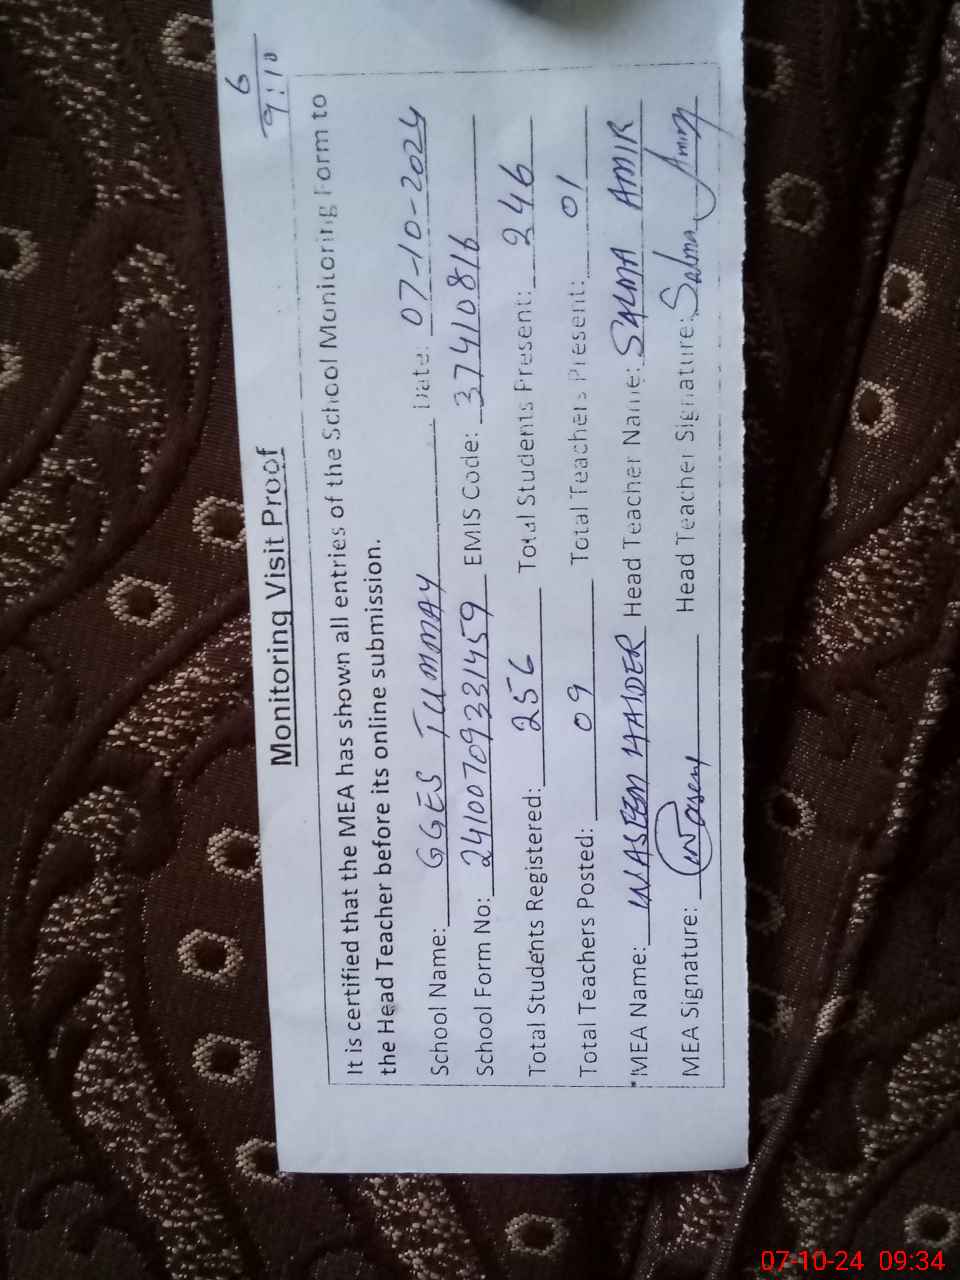 6
9:10
Monitoring Visit Proof
It is certified that the MEA has shown all entries of the School Monitoring Form to
the Head Teacher before its online submission.
School Name: GGES TUMMAY Date: 07-10-2024
School Form No: 241007093321459 EMIS Code: 37410816
Total Students Registered: 256 Total Students Present: 246
Total Teachers Posted: 09 Total Teachers Present: 01
MEA Name: WASEEM HAIDER Head Teacher Name: SALMA AMIR
MEA Signature: Waseem Head Teacher Signature: Salma Amir
07-10-24 09:34